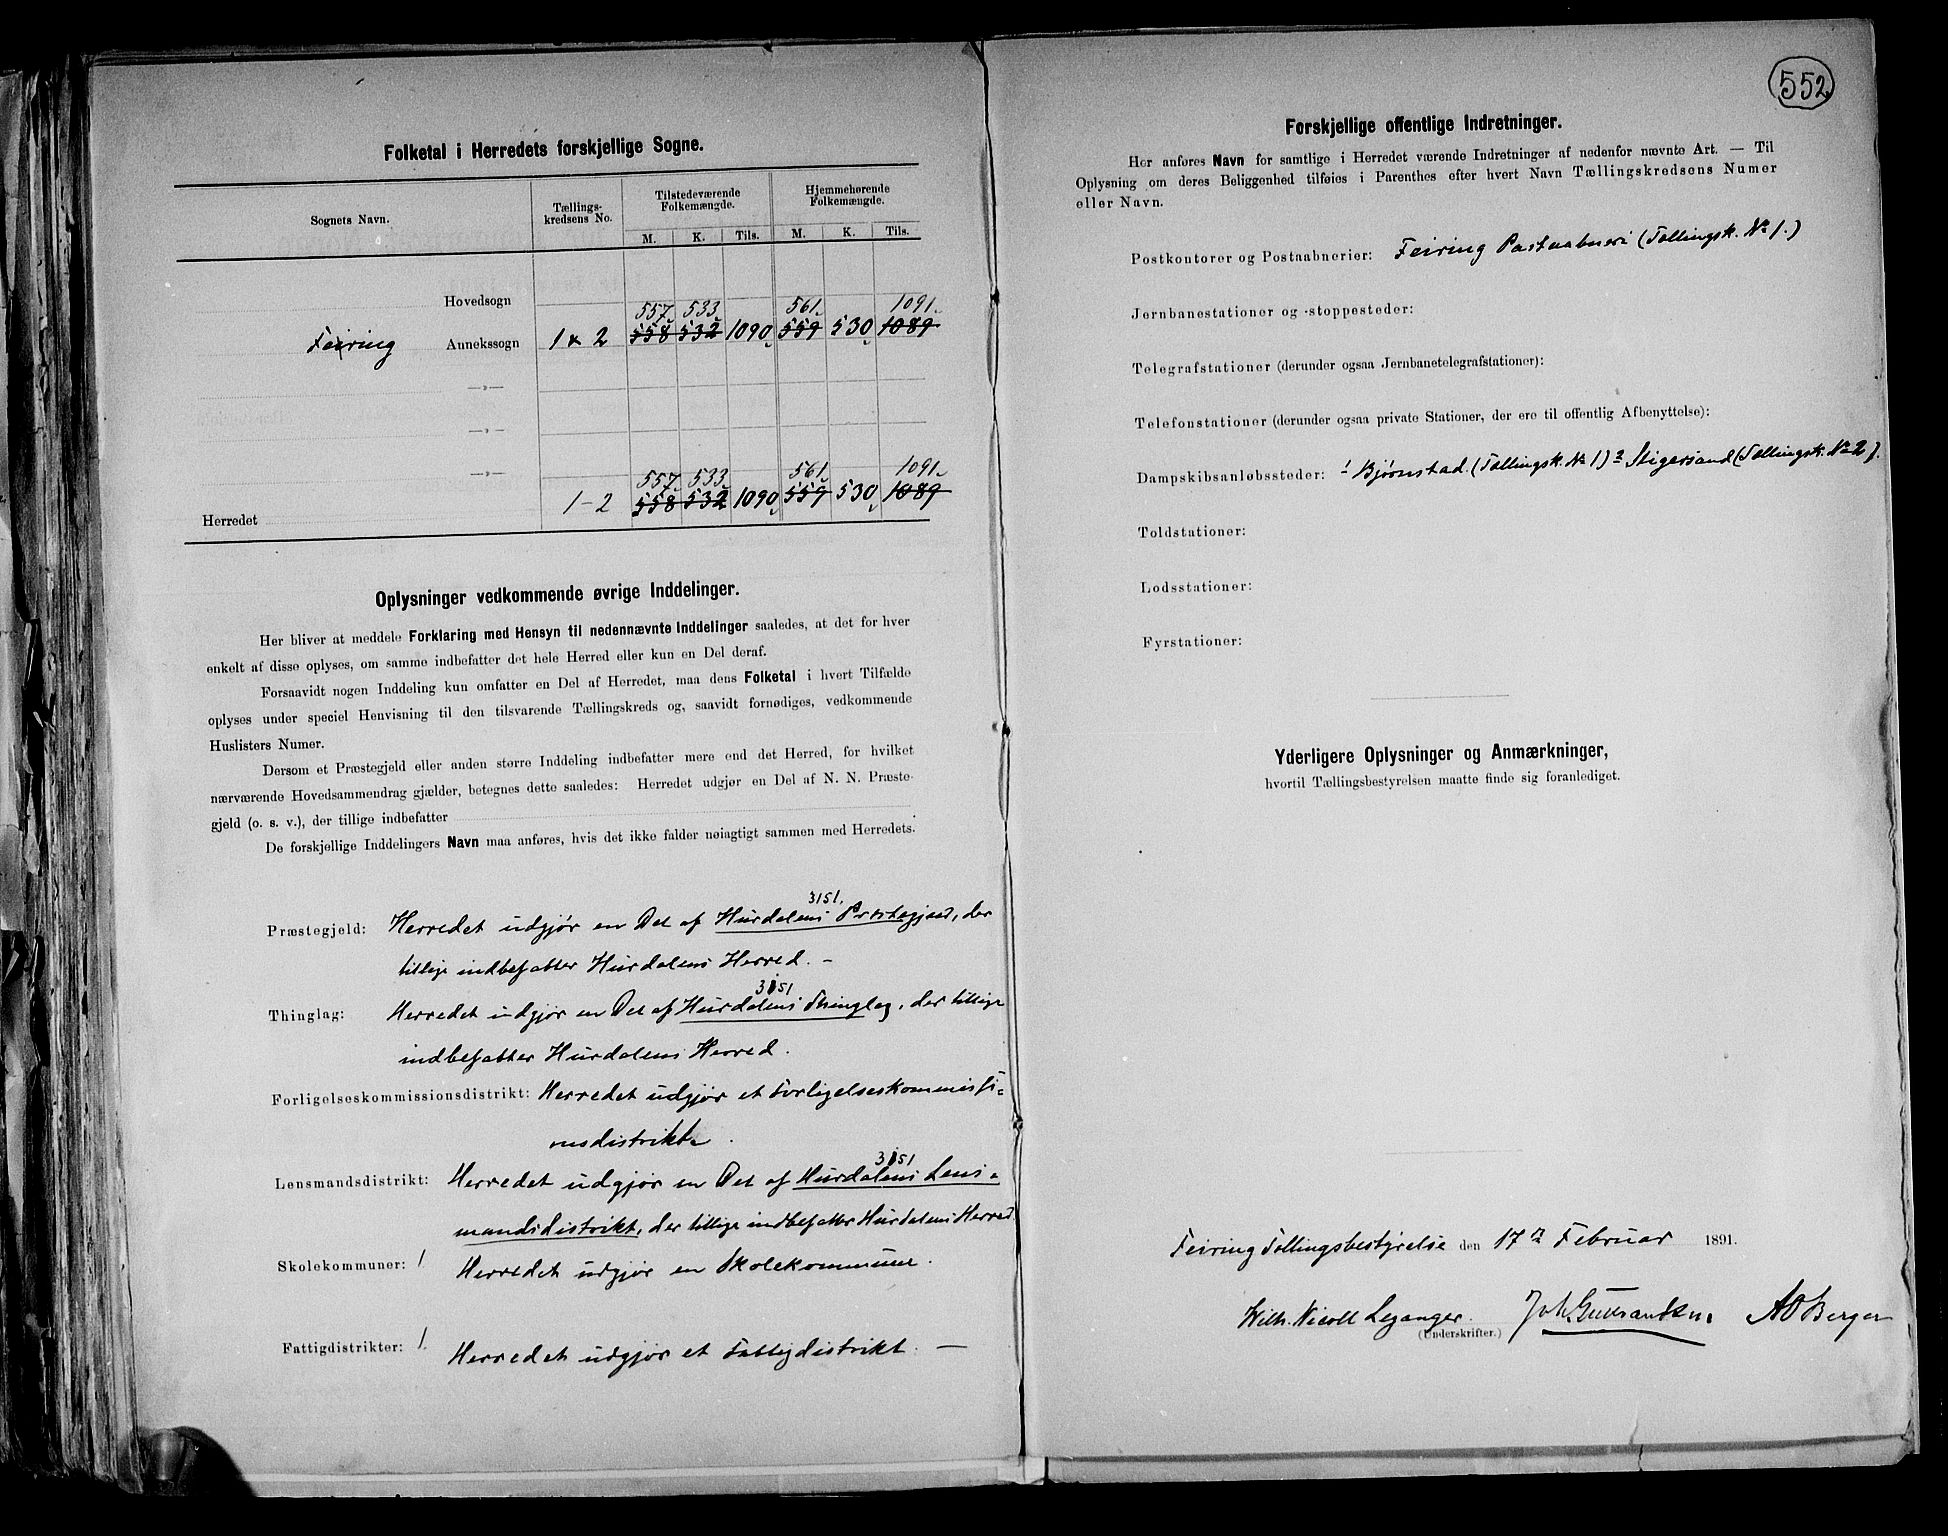 Folketal i Herredets forskjellige Sogne.
Sognets Navn.
Tællings-
kredsens No.
Tilstedeværende
Folkemængde.
Hjemmehørende
Folkemængde.
M. K. Tils. M. K. Tils.
Hovedsogn
557 533 561 1091
Feiring Annekssogn 1 & 2 558 532 1090 559 530 1089
—„—
—„—
—„—
557 533 561 1091
Herredet 1-2 558 532 1090 559 530 1089
Oplysninger vedkommende øvrige Inddelinger.
Her bliver at meddele Forklaring med Hensyn til nedennævnte Inddelinger saaledes, at det for hver
enkelt af disse oplyses, om samme indbefatter det hele Herred eller kun en Del deraf.
Forsaavidt nogen Inddeling kun omfatter en Del af Herredet, maa dens Folketal i hvert Tilfælde
oplyses under speciel Henvisning til den tilsvarende Tællingskreds og, saavidt fornødiges, vedkommende
Huslisters Numer.
Dersom et Præstegjeld eller anden større Inddeling indbefatter mere end det Herred, for hvilket
nærværende Hovedsammendrag gjælder, betegnes dette saaledes: Herredet udgjør en Del af N. N. Præste-
gjeld (o. s. v.), der tillige indbefatter
De forskjellige Inddelingers Navn maa anføres, hvis det ikke falder nøiagtigt sammen med Herredets.
3151.
Præstegjeld: Herredet udgjør en Del af Hurdalens Præstegjeld, der
tillige indbefatter Hurdalens Herred. -
3151
Thinglag: Herredet udgjør en Del af Hurdalens Thinglag, der tillige
indbefatter Hurdalens Herred.
Forligelseskommissionsdistrikt: Herredet udgjør et Forligelseskommissi-
onsdistrikt.
3151
Lensmandsdistrikt: Herredet udgjør en Del af Hurdalens Lens-
mandsdistrikt, der tillige indbefatter Hurdalens Herred
Skolekommuner: 1 Herredet udgjør en Skolekommune.
Fattigdistrikter: 1. Herredet udgjør et Fattigdistrikt. —
552
Forskjellige offentlige Indretninger.
Her anføres Navn for samtlige i Herredet værende Indretninger af nedenfor nævnte Art. — Til
Oplysning om deres Beliggenhed tilføies i Parenthes efter hvert Navn Tællingskredsens Numer
eller Navn.
Postkontorer og Postaabnerier: Feiring Postaabneri (Tællingsk. No 1.)
Jernbanestationer og -stoppesteder:
Telegrafstationer (derunder ogsaa Jernbanetelegrafstationer):
Telefonstationer (derunder ogsaa private Stationer, der ere til offentlig Afbenyttelse):
Dampskibsanløbssteder: 1 Bjørnstad. (Tællingsk. No 1) 2 Stigersand (Tællingsk. No 2).
Toldstationer:
Lodsstationer:
Fyrstationer:
Yderligere Oplysninger og Anmærkninger,
hvortil Tællingsbestyrelsen maatte finde sig foranlediget.
Feiring Tællingsbestyrelse den 17de Februar 1891.
Wilh. Nicoll Leganger. Joh. Gulbrandsen. AO Berger
(Underskrifter.)